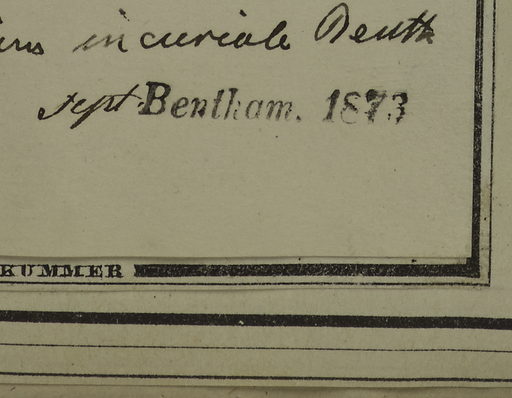 incuriale Benth
sept. Bentham. 1873
KUMMER